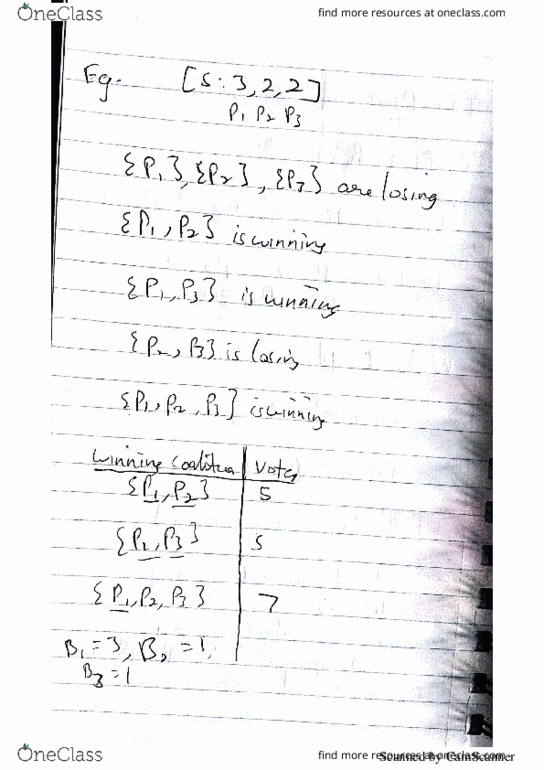 OneClass
find more resources at oneclass.com
Eg. [5:3,2,2]
P1 P2 P3
{P1},{P2},{P3} are losing
{P1,P2} is winning
{P1,P3} is winning
{P2,P3} is losing
{P1,P2,P3} is winning
winning coalition | Votes
{P1,P2} 5
{P1,P3} 5
{P1,P2,P3} 7
B1=3, B2=1,
B3=1
OneClass
find more resources at oneclass.com
Scanned by CamScanner